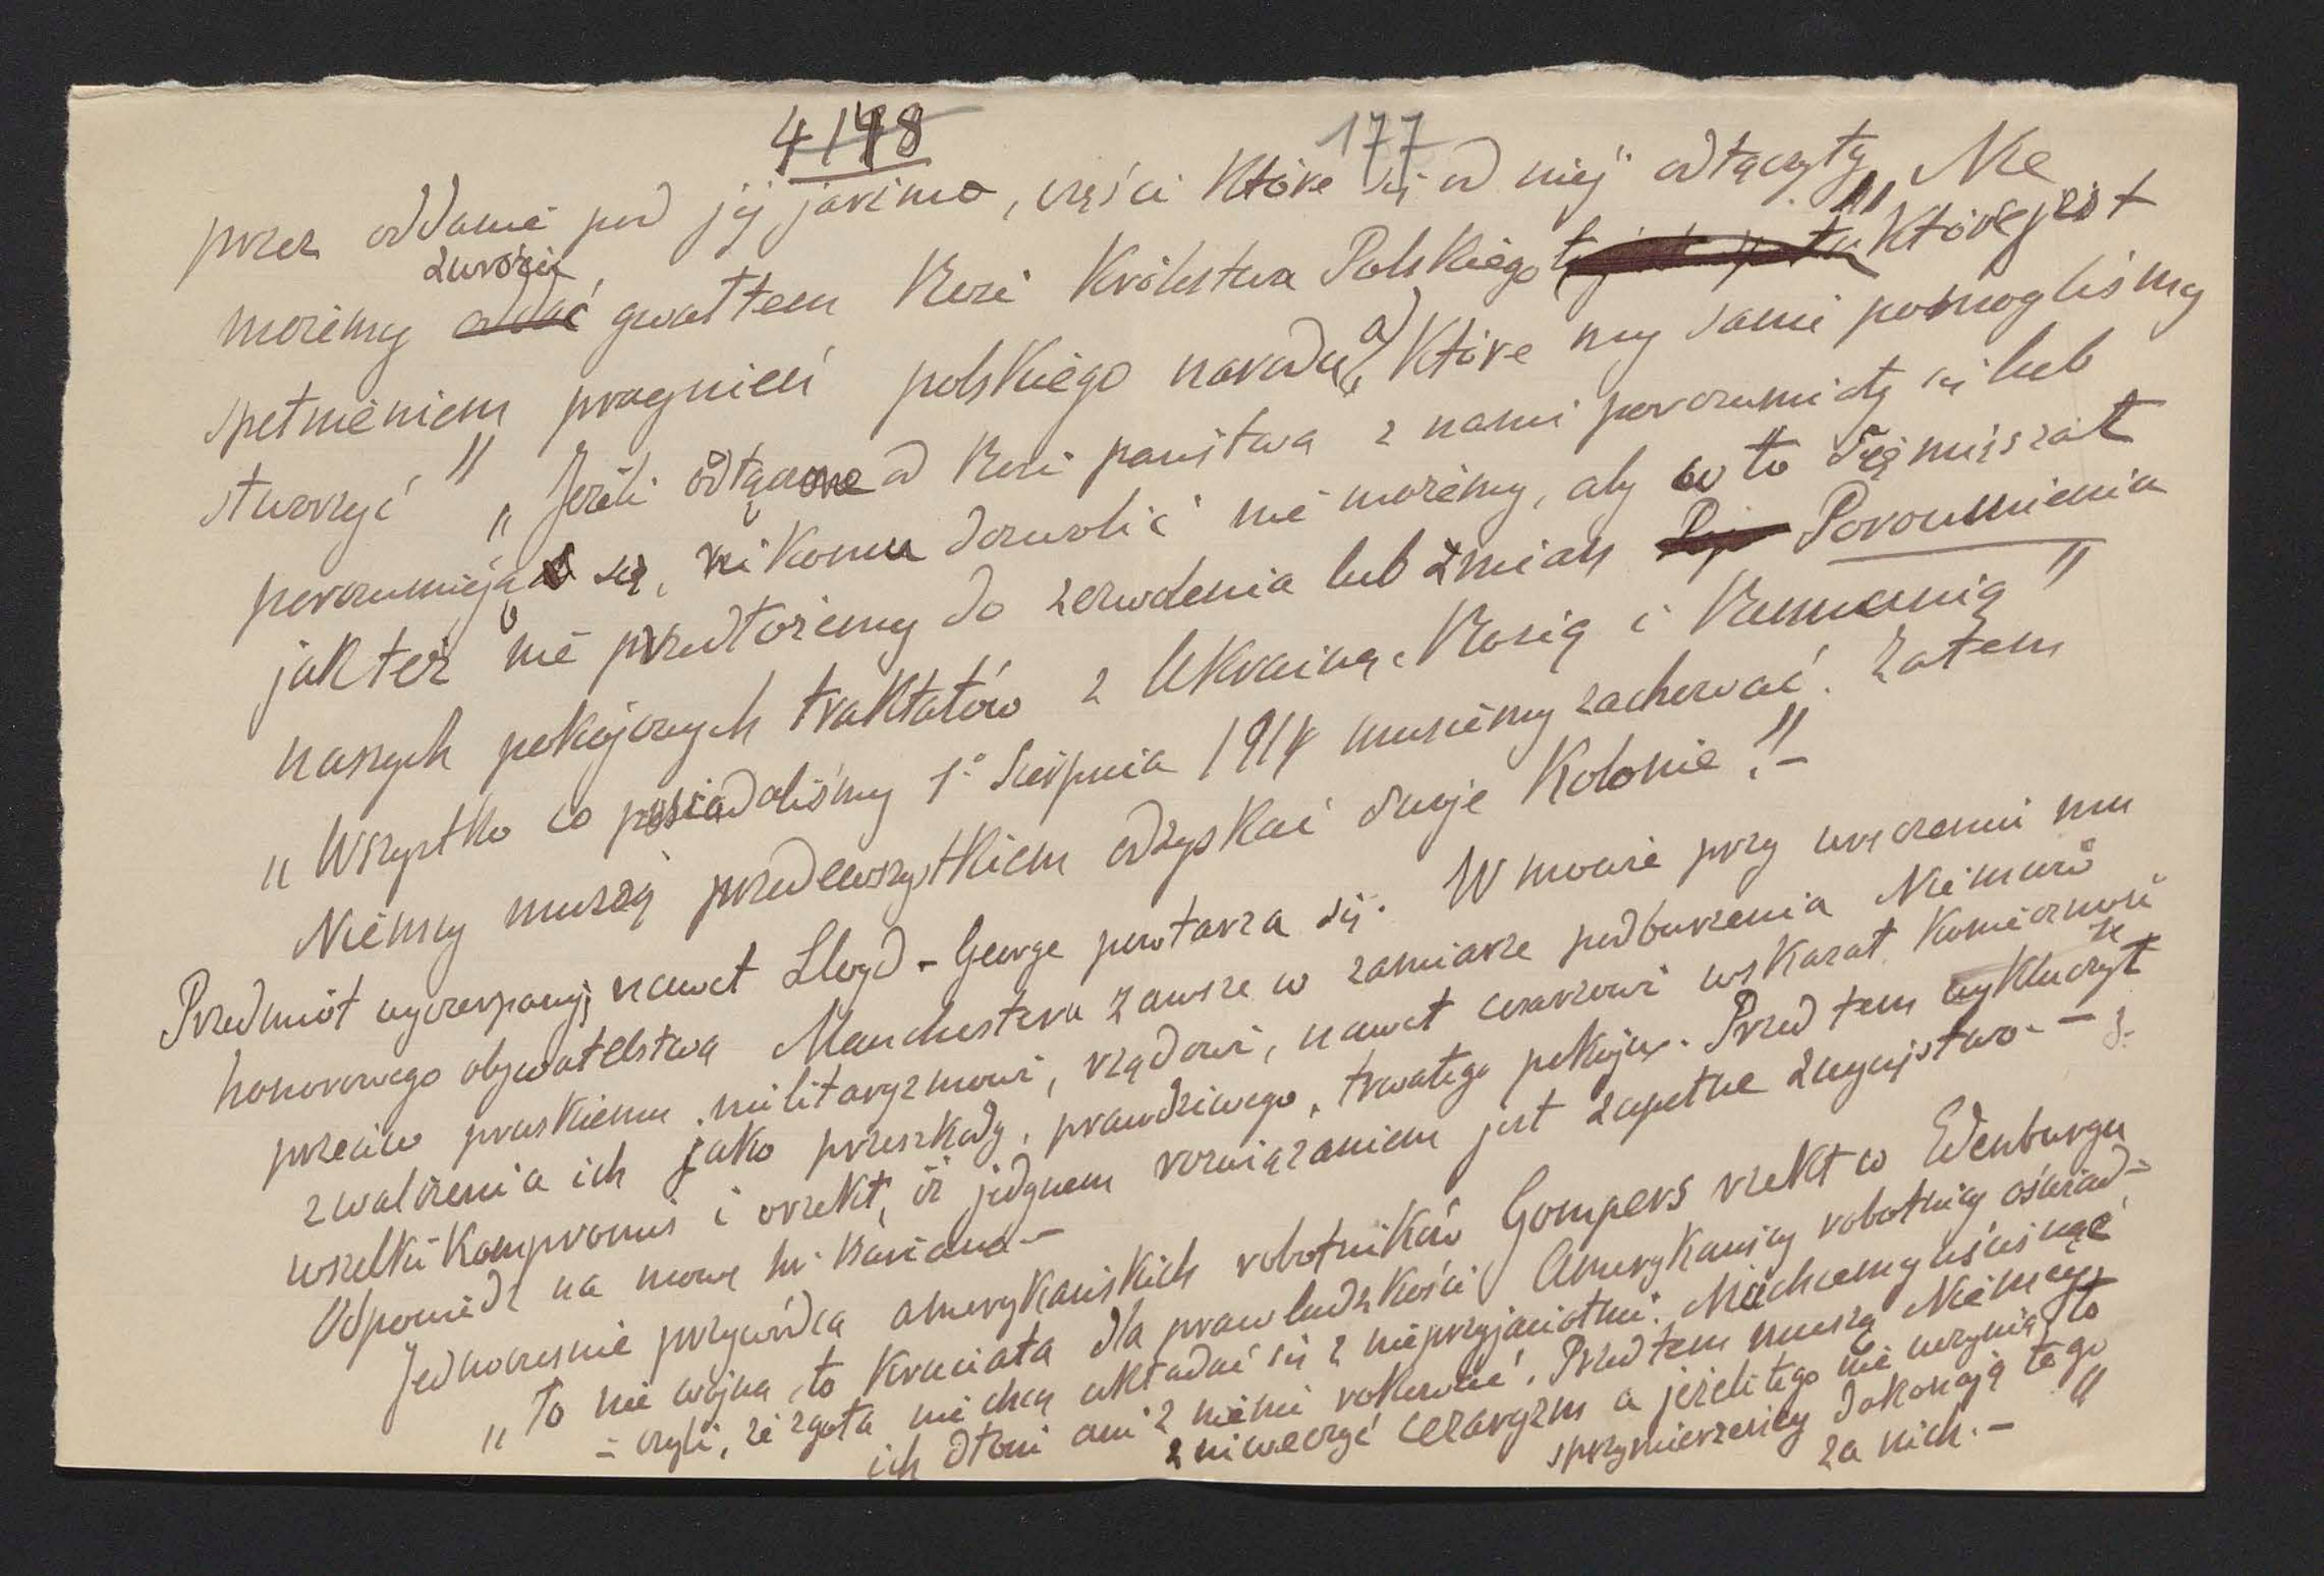 4148
177
przez oddanie pod jej jarzmo, części które się od niej odłączyły, Nie
możemy zwrócić gwałtem Rosi Królestwa Polskiego które jest
spełnieniem pragnień polskiego narodu a które my sami pomogliśmy
stworzyć" "Jeżeli odłączone od Rosi państwa z nami porozumiały się lub
porozumieją się, nikomu dozwolić nie możemy, aby w to się mięszał
jak też nie przedłożemy do zezwolenia lub zmian Porozumienia
naszych pokojowych traktatów z Ukrainą, Rosią i Rumunią"
"Wszystko co posiadaliśmy 1° Sierpnia 1914 musiemy zachować. Zatem
Niemcy muszą przedewszystkiem odzyskać swoje Kolonie!"-
Przedmiot wyczerpany; nawet Lloyd-George powtarza się. W mowie przy wręczeniu mu
honorowego obywatelstwa Manchesteru zawsze w zamiarze podburzenia Niemców
przeciw pruskiemu militaryzmowi, rządowi, nawet cesarzowi wskazał konieczność
zwalczenia ich jako przeszkody, prawdziwego, trwałego pokoju. Przed tem wykluczył
wszelki kompromis i orzekł, iż jedynem rozwiązaniem jest zupełne zwycięstwo.-
Odpowiedź na mowę hr. Buriana-
Jednocześnie przywódca amerykańskich robotników Gompers rzekł w Edenburgu
"To nie wojna, to krucjata dla praw ludzkości Amerykańscy robotnicy oświad-
-czyli, że zgoła nie chcą układać się z nieprzyjaciółmi. Niechcemy uścisnąć
ich dłoni ani z niemi rokować. Przed tem muszą Niemcy
zniweczyć cezaryzm a jeżeli tego nie uczynią, to
sprzymierzeńcy dokonają tego
za nich.- "